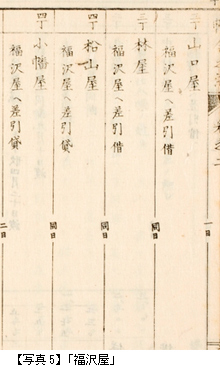 一日
山口屋
福沢屋へ差引借
同日
林屋
福沢屋へ差引借
同日
四丁 松山屋
福沢屋へ差引貸
同日
四丁 小幡屋
福沢屋へ差引貸
二日
【写真5】「福沢屋」